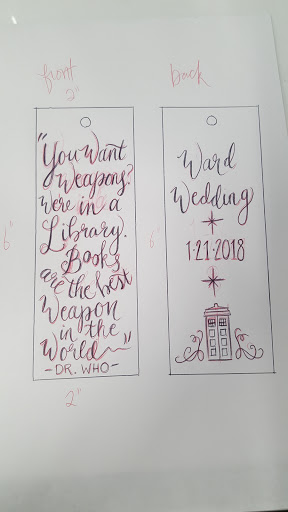 front
2"
6"
"You Want
Weapons?
We're in a
Library.
Books
are the best
Weapon
in the
World"
-DR. WHO-
2"
back
6"
Ward
Wedding
1·21·2018